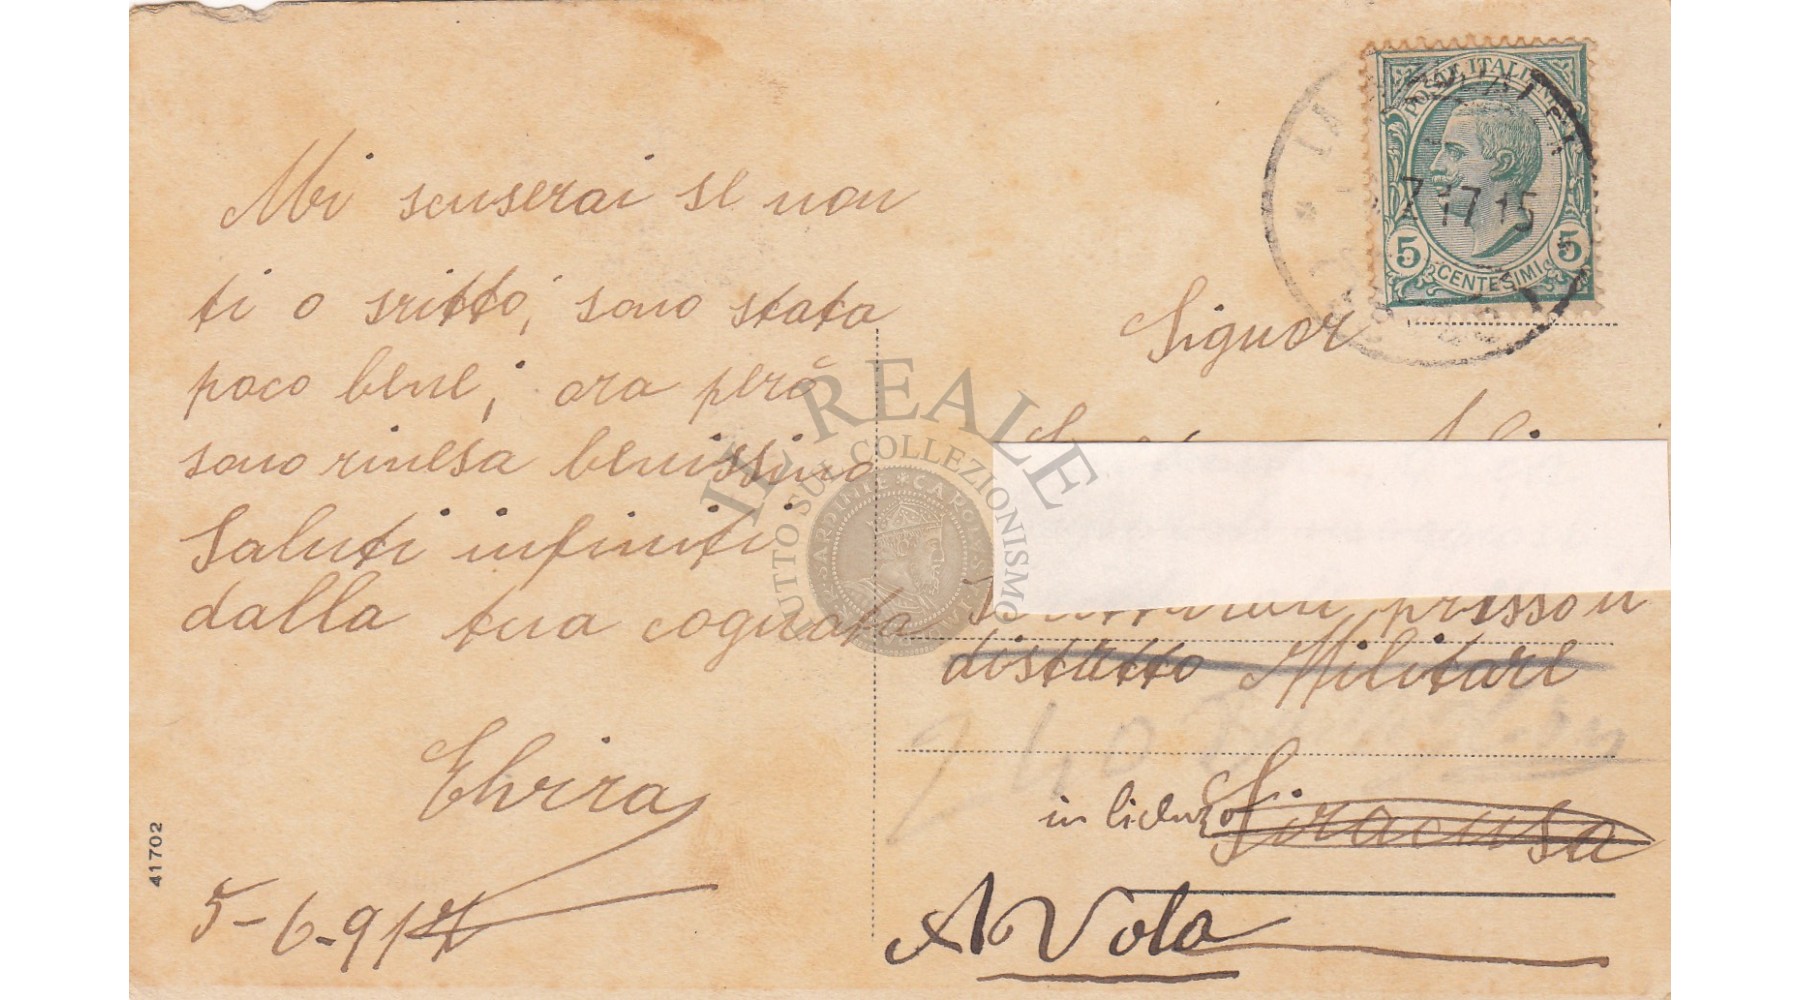 Mi scuserai se non
ti o sritto, sono stata
poco bene, ora però
sono rinesa benissimo
Saluti infiniti
dalla tua cognata
Elvira
5-6-917
41702
POSTE ITALIANE
7 17 15
5 CENTESIMI 5
Signor
presso il
distretto Militare
240
in licenza Siracusa
AVola
IL REALE
TUTTO SUL COLLEZIONISMO